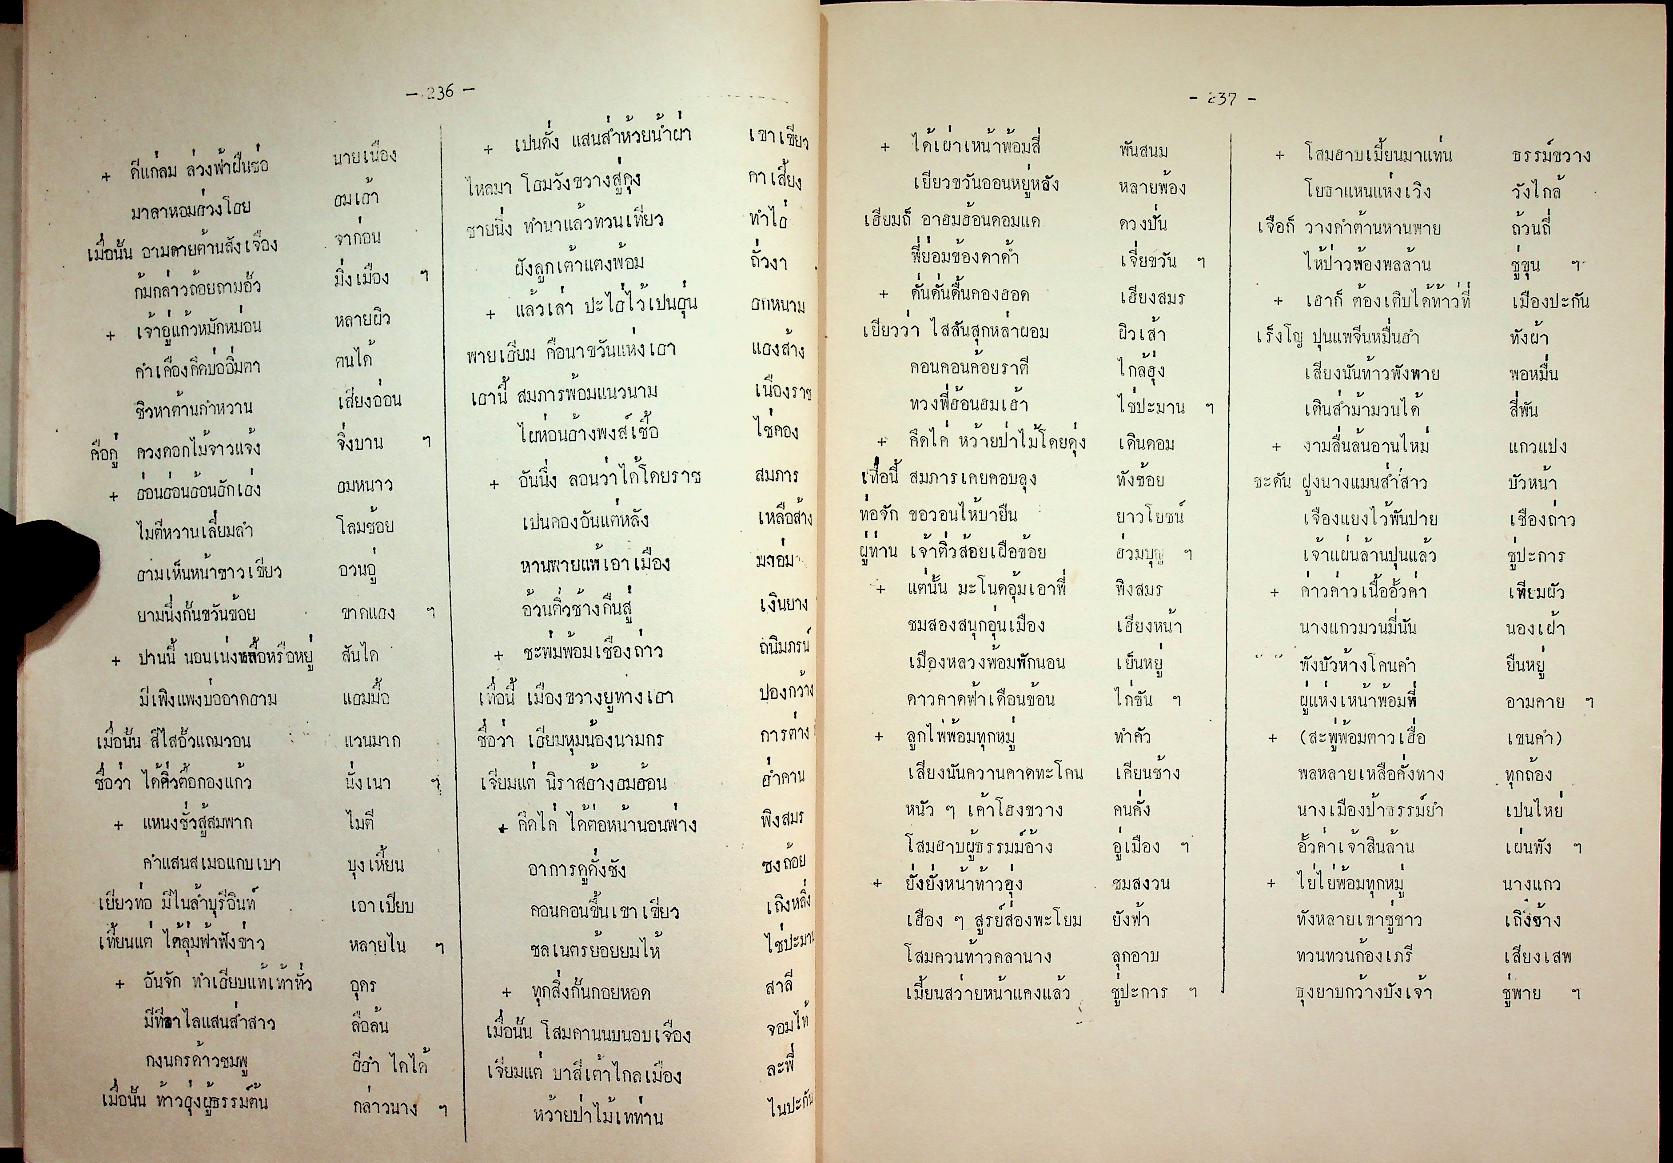 - 236 -
+ ดีแก่ลม ล่วงฟ้าฝืนช่อ นายเนือง
มาลาหอมฮ่วงโฮย ฮมเฮ้า
เมื่อนั้น อามคายต้านสั่งเจือง จาก่อน
ก้มกล่าวถ้อยถามอั้ว มิ่งเมือง ฯ
+ เจ้าอยู่แก้วหมักหม่อน หลายผิว
คำเคืองคึดบ่อิ่มตา ตนได้
ชิวหาต้านคำหวาน เสียงอ่อน
คือคู่ ดวงดอกไม้จาวแจ้ง จิ่งบาน ฯ
+ ฮ่อนฮ่อนฮ้อนฮักเฮ่ง ฮมหนาว
ไมตีหวานเลี่ยมลำ โลมช้อย
ฮามเห็นหน้าขาวเขียว อวนอู่
ยามนึ่งกั้นขวันข้อย ขาดแฮง ฯ
+ ปานนี้ นอนเน่งหลื้อหรือหยู่ สันใด
มีเพิงแพงบ่ออาดฮาม แฮมมื้อ
เมื่อนั้น สีใสอั้วแถมวอน แวนมาก
ชื่อว่า ได้คิ่วคื้อกองแก้ว นั่งเนา ฯ
+ แหนงชั่วสู้สมพาก ไมตี
คำแสนสเมอแกบเบา บุงเหี้ยน
เยียวท่อ มีในล้ำบุรีอินท์ เอาเปียบ
เที้ยนแต่ ได้ลุ่มฟ้าฟังข่าว หลายใน ฯ
+ อันจัก ทำเฮียบแท้เท้าทั่ว อุดร
มีที่ฮาไลแสนส่ำสาว ลือล้น
กงนครค้าวชมพู ฮีฮำ ไดได้
เมื่อนั้น ท้าวฮุ่งผู้ธรรม์ต้น กล่าวนาง ฯ
+ เปนดั่ง แสนส่ำห้วยน้ำผ่า เขาเขียว
ไหลมา โฮมวังขวางสู่กุง คาเสี้ยง
ชายนึ่ง ทำนาแล้วทวนเทียว ทำไฮ่
ฝังลูกเต้าแตงพ้อม ถั่วงา
+ แล้วเล่า ปะไฮ่ไว้เปนฮุ่น ฮกหนาม
พายเฮียม คือนาขวันแห่งเฮา แฮงส้าง
เฮานี้ สมภารพ้อมแนวนาม เนืองราช
ไผห่อนอ้างพงส์เชื้อ ไช่คอง
+ อันนึ่ง ลอนว่าได้โดยราช สมภาร
เปนคองอันแต่หลัง เหลือส้าง
หานพายแพ้เอาเมือง
อ้วนคิ่วช้างคืนสู่ เงินยาง
+ ชะพ่มพ้อมเชืองถ่าว ถนิมภรณ์
เทื่อนี้ เมืองขวางยูทางเฮา ปองกว้าง
ชื่อว่า เฮียมหุมน้องนามกร การต่าง
เจียมแต่ นิราสฮ้างฮมฮ้อน ฮ่ำคาน
+ คึดไค่ ได้ต่อหน้านอนพ่าง พิงสมร
อาการคูคั่งชัง ชงถ้อย
คอนคอนขึ้นเขาเขียว เถิงหลิ่ง
ชลเนตรย้อยยมไห้ ไช่ปะมาน
+ ทุกสิ่งกั้นกอยหอด สาลี
เมื่อนั้น โสมคานนบนอบเจือง จอมไท้
เจียมแต่ บาสี่เต้าไกลเมือง ละพี่
หว้ายป่าไม้เทท่าน ไนปะกัน
- 237 -
+ ได้เผ่าเหน้าพ้อมสี่ พันสนม
เยียวขวันออนหยู่หลัง หลายพ้อง
เฮียมถี อาฮมฮ้อนคอมแค ดวงปั่น
พี่ย่อมข้องคาค้ำ เจี่ยขวัน ฯ
+ คั่นคั่นคื้นคองฮอด เฮียงสมร
เยียวว่า ไสสันสุกหล่าผอม ผิวเส้า
คอนคอนค้อยราตี ไกล้ฮุ่ง
ทวงพี่ฮ้อนฮมเฮ้า ไช่ปะมาน ฯ
+ คึดไค่ หว้ายป่าไม้โดยคุ่ง เดินดอม
เทื่อนี้ สมภารเคยคอบลุง ทังข้อย
ท่อจัก ขอวอนไห้บายืน ยาวโยชน์
ผู้ท่าน เจ้าคิ่วส้อยเฝือช้อย ฮ่วมบุญ ฯ
+ แต่นั้น มะโนคอุ้มเอาพี่ พิงสมร
ชมสองสนุกอุ่นเมือง เฮียงหน้า
เมืองหลวงพ้อมพักนอน เย็นหยู่
ดาวคาดฟ้าเดือนข้อน ไก่ขัน ฯ
+ ลูกไพ่พ้อมทุกหมู่ ทำคัว
เสียงนันควานคาดทะโคน เคียนช้าง
หนัว ๆ เค้าโฮงขวาง คนคั่ง
โสมฮาบผู้ธรรมม์อ้าง อู่เมือง ฯ
+ ยั่งยั่งหน้าท้าวฮุ่ง ชมสงวน
เฮือง ๆ สูรย์ส่องพะโยม ยังฟ้า
โสมควนท้าวคลานาง ลุกอาบ
เมี้ยนสว่ายหน้าแคงแล้ว ชู่ปะการ ฯ
+ โสมฮาบเมี้ยนมาแท่น ธรรม์ขวาง
โยธาแหนแห่งเวิง วังไกล้
เจือก็ วางคำต้านหานพาย ถ้วนถี่
ไห้ป่าวพ้องพลล้าน ชู่ขุน ฯ
+ เฮาก็ ต้องเติบได้ท้าวที่ เมืองปะกัน
เร็งโญ ปุนแพจีนหมื่นฮำ ทังผ้า
เสียงนันท้าวพังพาย พอหมื่น
เดินส่ำม้ามวนได้ สี่พัน
+ งามลื่นล้นอานไหม่ แกวแปง
ชะดัน ฝูงนางแมนส่ำสาว บัวหน้า
เจืองแยงไว้พันปาย เชืองถ่าว
เจ้าแผ่นล้านปุนแล้ว ชู่ปะการ
+ ค่าวค่าวเนื้ออั้วค่า เทียมผัว
นางแกวมวนมี่นัน นองเฝ้า
" " พังบัวห้างโคนคำ ยืนหยู่
ผู่แห่งเหน้าพ้อมพี่ อามคาย ฯ
+ (สะพู่พ้อมดาวเฮื่อ เขนคำ)
พลหลายเหลือคั่งทาง ทุกถ้อง
นางเมืองป้าธรรม์ยำ เปนไหย่
อั้วค่าเจ้าสินล้าน เผ่นทัง ฯ
+ ไย่ไย่พ้อมทุกหมู่ นางแกว
ทังหลายเขาชู่ชาว เถิงช้าง
ทวนทวนก้องเภรี เสียงเสพ
ธุงยาบกว้างบังเจ้า ชู่พาย ฯ